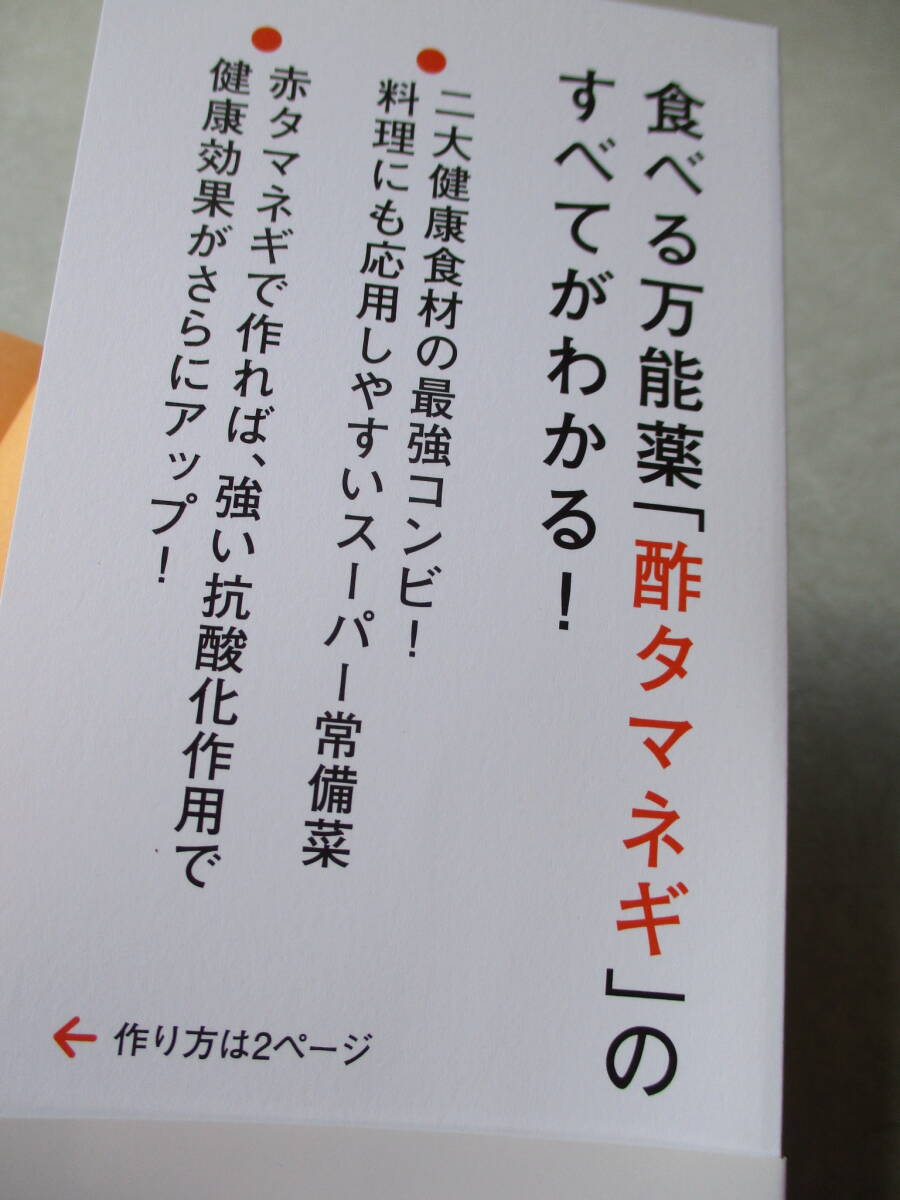 食べる万能薬「酢タマネギ」の
すべてがわかる！
● 二大健康食材の最強コンビ！
料理にも応用しやすいスーパー常備菜
● 赤タマネギで作れば、強い抗酸化作用で
健康効果がさらにアップ！
← 作り方は2ページ